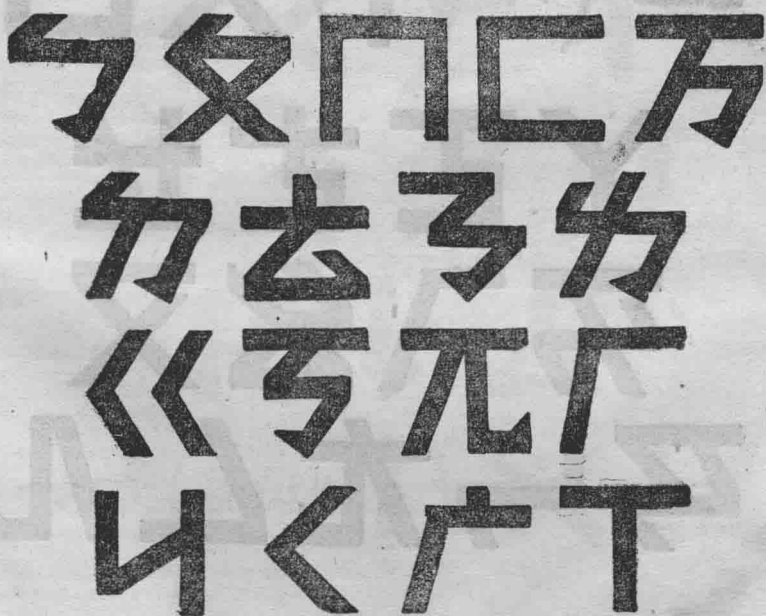 ㄅㄆㄇㄈㄪ
ㄉㄊㄋㄌ
ㄍㄎㄫㄏ
ㄐㄑㄬㄒ